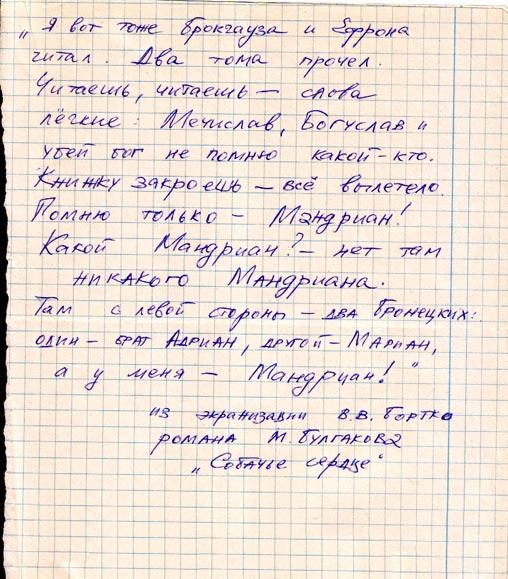 „Я вот тоже Брокгауза и Ефрона
читал. Два тома прочел.
Читаешь, читаешь – слова
лёгкие: Мечислав, Богуслав и
убей бог не помню какой-кто.
Книжку закроешь – всё вылетело.
Помню только – Мандриан!
Какой Мандриан? – нет там
никакого Мандриана.
Там с левой стороны – два Бронецких:
один – брат Адриан, другой – Мариан,
а у меня – Мандриан!"
из экранизации В.В. Бортко
романа М. Булгакова
„Собачье сердце"